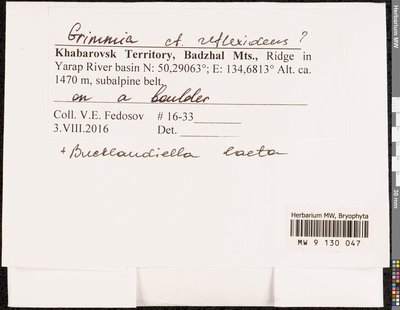 Grimmia cf reflexidens ?
Khabarovsk Territory, Badzhal Mts., Ridge in
Yarap River basin N: 50,29063°; E: 134,6813° Alt. ca.
1470 m, subalpine belt,
on a boulder
Coll. V.E. Fedosov # 16-33
3.VIII.2016 Det.
+ Bucklandiella laeta
Herbarium MW, Bryophyta
MW 9 130 047
Herbarium MW
30 mm